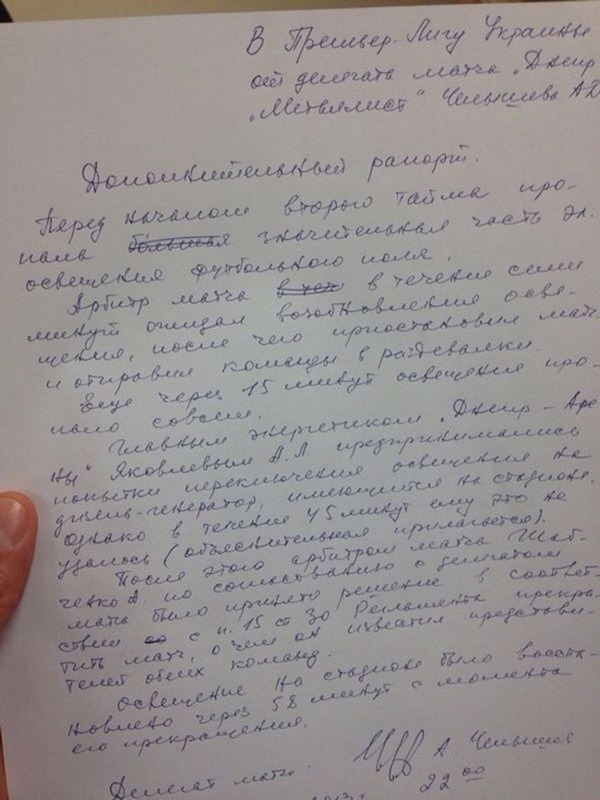 В Премьер-Лигу Украины
от делегата матча „Днепр
„Металлист“ Челышева А.
Дополнительный рапорт.
Перед началом второго тайма про-
пала большая значительная часть эл.
освещения футбольного поля.
Арбитр матча в течение семи
минут ожидал возобновления осве-
щения, после чего приостановил матч
и отправил команды в раздевалки.
Еще через 15 минут освещение про-
пало совсем.
Главным энергетиком „Днепр - Аре
ны“ Яковлевым А.Л. предпринимались
попытки переключения освещения на
дизель-генератор, имеющийся на стадионе.
Однако в течение 45 минут ему это не
удалось (объяснительная прилагается).
После этого арбитром матча Шаб-
ченко А. по согласованию с делегатом
матча было принято решение в соответ-
ствии с п. 15 ст 30 Регламента прекра-
тить матч, о чем он известил представи-
телей обеих команд.
Освещение на стадионе было восста-
новлено через 58 минут с момента
его прекращения.
Делегат матча: А. Челышев
22 00